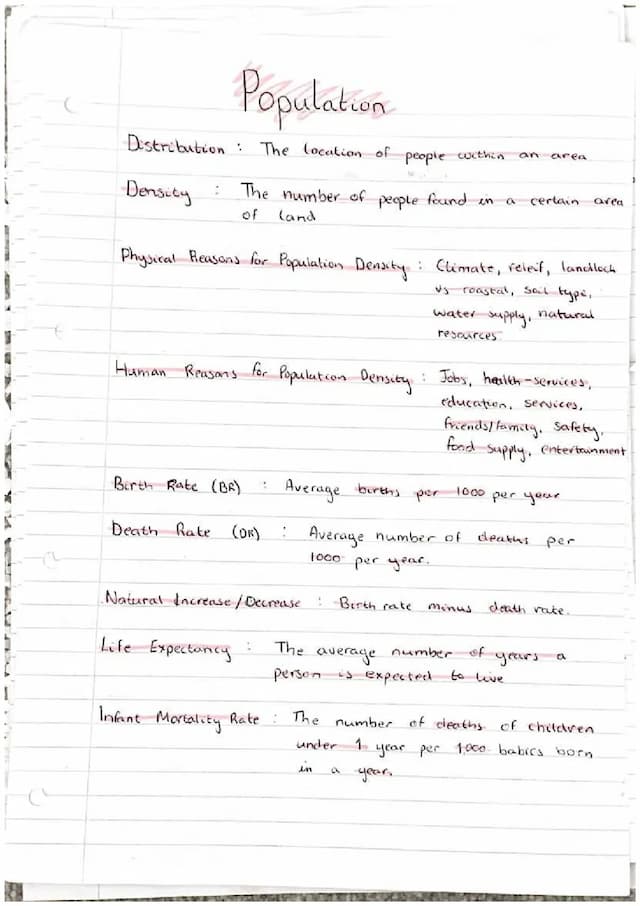 Population
Distribution : The location of people within an area
Density : The number of people found in a certain area
of land
Physical Reasons for Population Density : Climate, releif, landlock
vs coastal, soil type,
water supply, natural
resources
Human Reasons for Population Density : Jobs, health-services,
education, services,
friends/family, safety,
food supply, entertainment
Birth Rate (BR) : Average births per 1000 per year
Death Rate (DR) : Average number of deaths per
1000 per year.
Natural Increase/Decrease : Birth rate minus death rate.
Life Expectancy : The average number of years a
person is expected to live
Infant Mortality Rate : The number of deaths of children
under 1 year per 1,000 babies born
in a year.